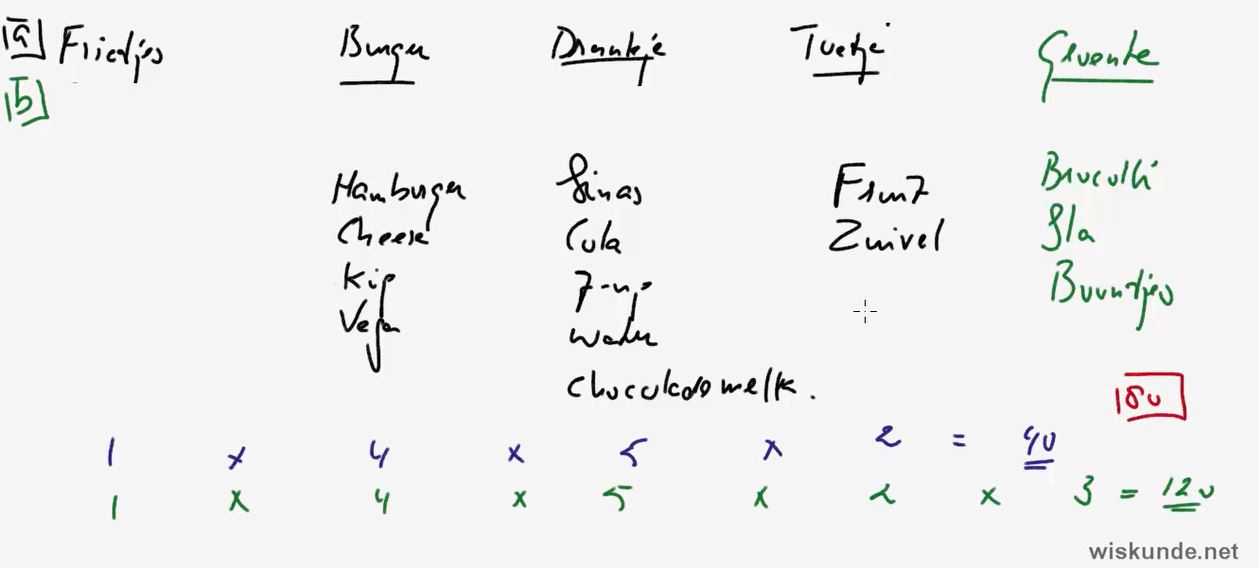 a Frietjes Burger Drankje Toetje Groente
b
Hamburger Sinas Fruit Broccoli
Cheese Cola Zuivel Sla
Kip 7-up Boontjes
Vega Water
Chocolademelk.
160
1 x 4 x 5 x 2 = 40
1 x 4 x 5 x 2 x 3 = 120
wiskunde.net